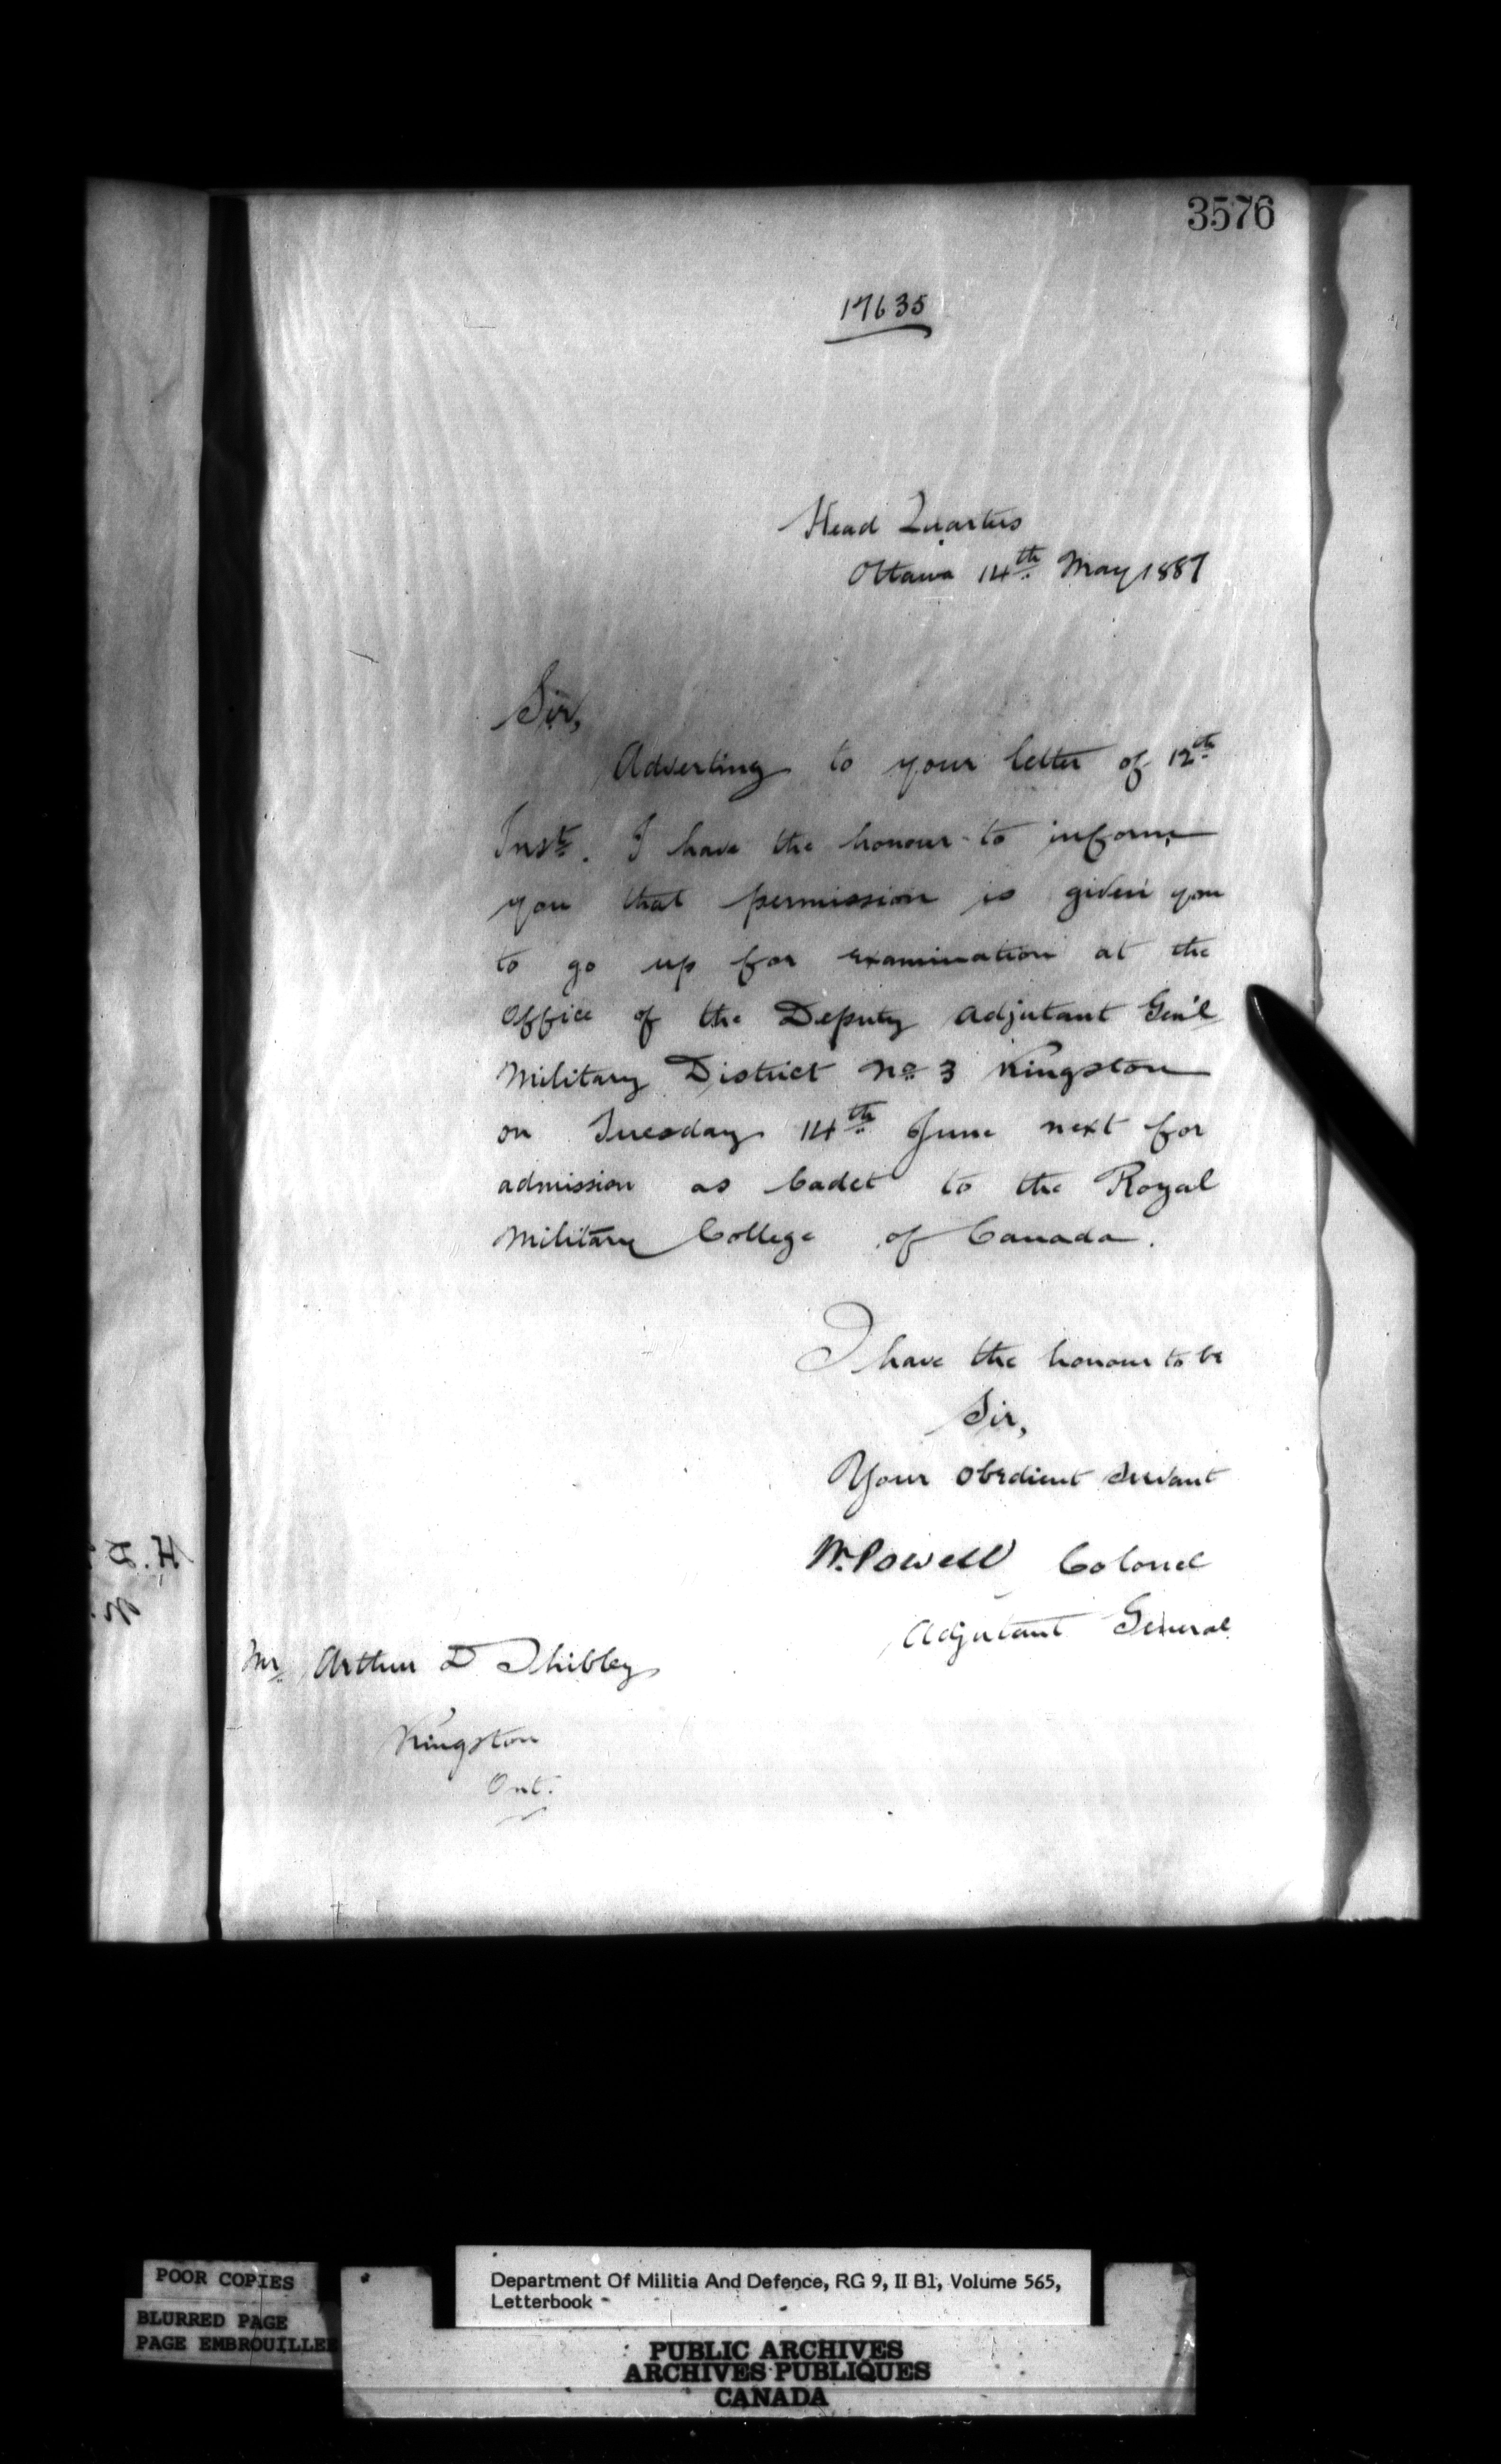 3576
17635
Head Quarters
Ottawa 14th May 1887
Sir,
Adverting to your letter of 12th
Inst. I have the honour to inform
you that permission is given you
to go up for examination at the
Office of the Deputy Adjutant Gen'l
Military District No 3 Kingston
on Tuesday 14th June next for
admission as Cadet to the Royal
Military College of Canada.
I have the honour to be
Sir,
Your Obedient Servant
W. Powell Colonel
Adjutant General
Mr Arthur D Shibley
Kingston
Ont.
POOR COPIES
BLURRED PAGE
PAGE EMBROUILLEE
Department Of Militia And Defence, RG 9, II B1, Volume 565,
Letterbook
PUBLIC ARCHIVES
ARCHIVES PUBLIQUES
CANADA